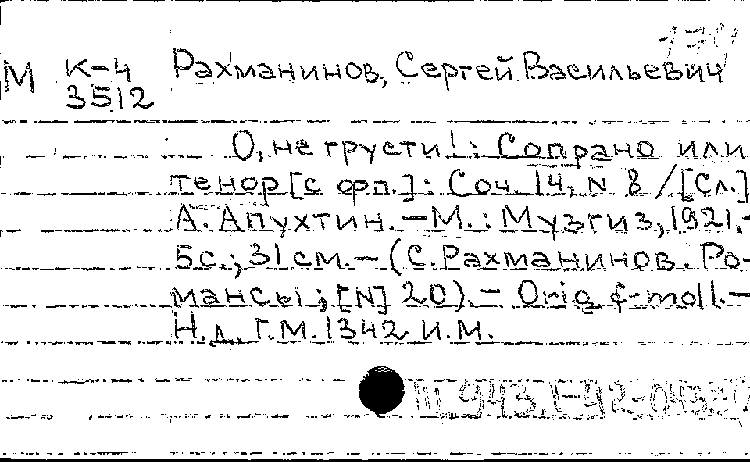 М К-4 Рахманинов, Сергей Васильевич
3512
О, не грусти!: Сопрано или
тенор [с фп.]: Соч. 14, N 8 / [Сл.]
А. Апухтин. — М.: Музгиз, 1921.-
5с.; 31 см. — (С. Рахманинов. Ро-
мансы; [N] 20). — Orig. f-moll. —
Н.д. Г.М. 1342 И.М.